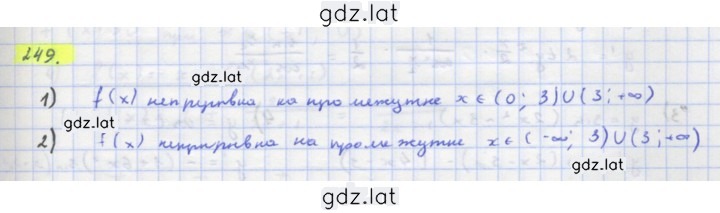 gdz.lat
249.
gdz.lat
1) f(x) непрерывна на промежутке x ∈ (0; 3)∪(3; +∞)
gdz.lat
2) f(x) непрерывна на промежутке x ∈ (-∞; 3)∪(3; +∞)
gdz.lat
gdz.lat